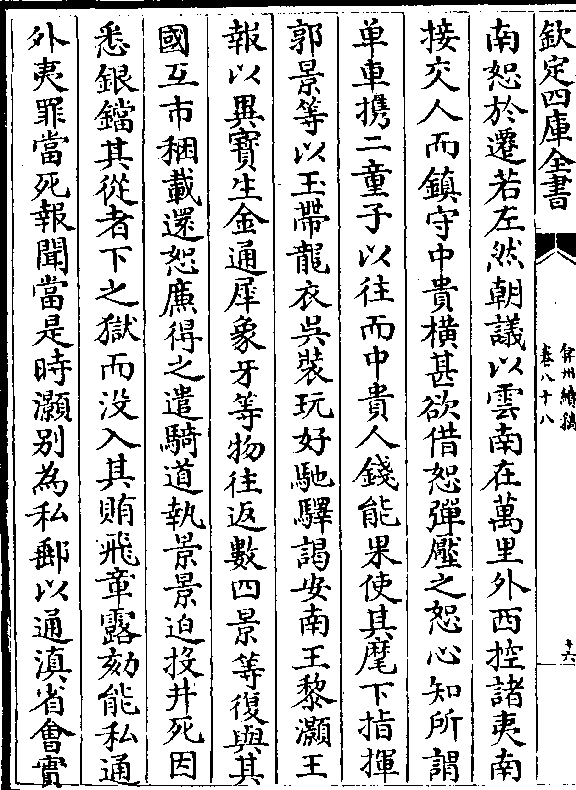 欽定四庫全書
弇州續稿
卷八十八
十六
南恕於遷若左然朝議以雲南在萬里外西控諸夷南
接交人而鎮守中貴橫甚欲借恕彈壓之恕心知所謂
单車攜二童子以往而中貴人錢能果使其麾下指揮
郭景等以玉帶龍衣吳裝玩好馳驛謁安南王黎灝王
報以異寶生金通犀象牙等物往返數四景等復與其
國互市稛載還恕廉得之遣騎道執景景迫投井死因
悉銀鐺其從者下之獄而没入其賄飛章露劾能私通
外夷罪當死報聞當是時灝别為私郵以通滇省會實